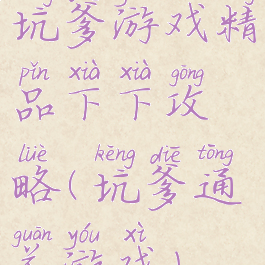 坑爹游戏精
pǐn xià xià gōng
品下下攻
lüè kēng diē tōng
略(坑爹通
guān yóu xì
关游戏)